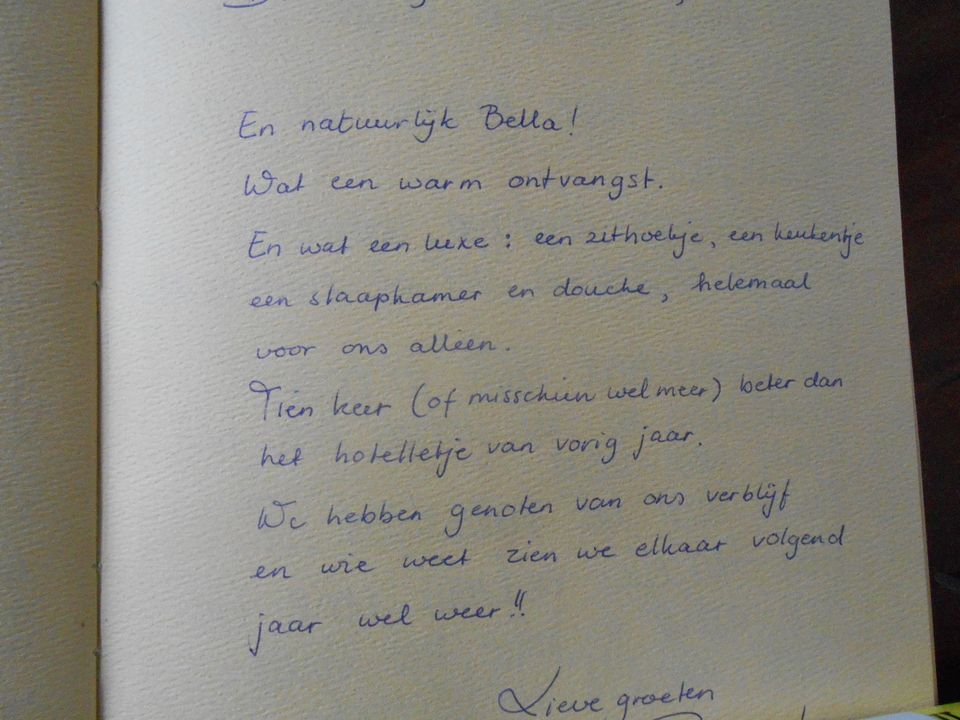 En natuurlijk Bella!
Wat een warm ontvangst.
En wat een luxe: een zithoekje, een keukentje
een slaapkamer en douche, helemaal
voor ons alleen.
Tien keer (of misschien wel meer) beter dan
het hotelletje van vorig jaar.
We hebben genoten van ons verblijf
en wie weet zien we elkaar volgend
jaar wel weer!!
Lieve groeten